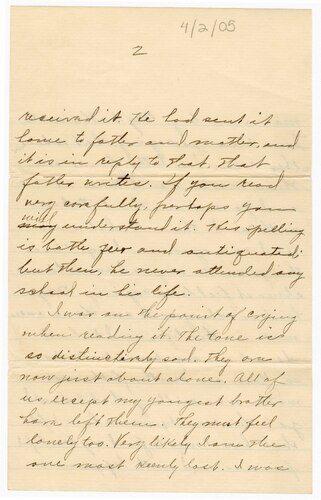 4/2/05
2
received it. He had sent it
home to father and mother, and
it is in reply to that, that
father writes. If you read
very carefully, perhaps you
will
may understand it. His spelling
is both and antiquated;
but then, he never attended any
school in his life.
I was on the point of crying
when reading it. The tone is
so distinctively sad. They are
now just about alone. All of
us, except my youngest brother
have left them. They must feel
lonely too. Very likely I am the
one most keenly lost. I was